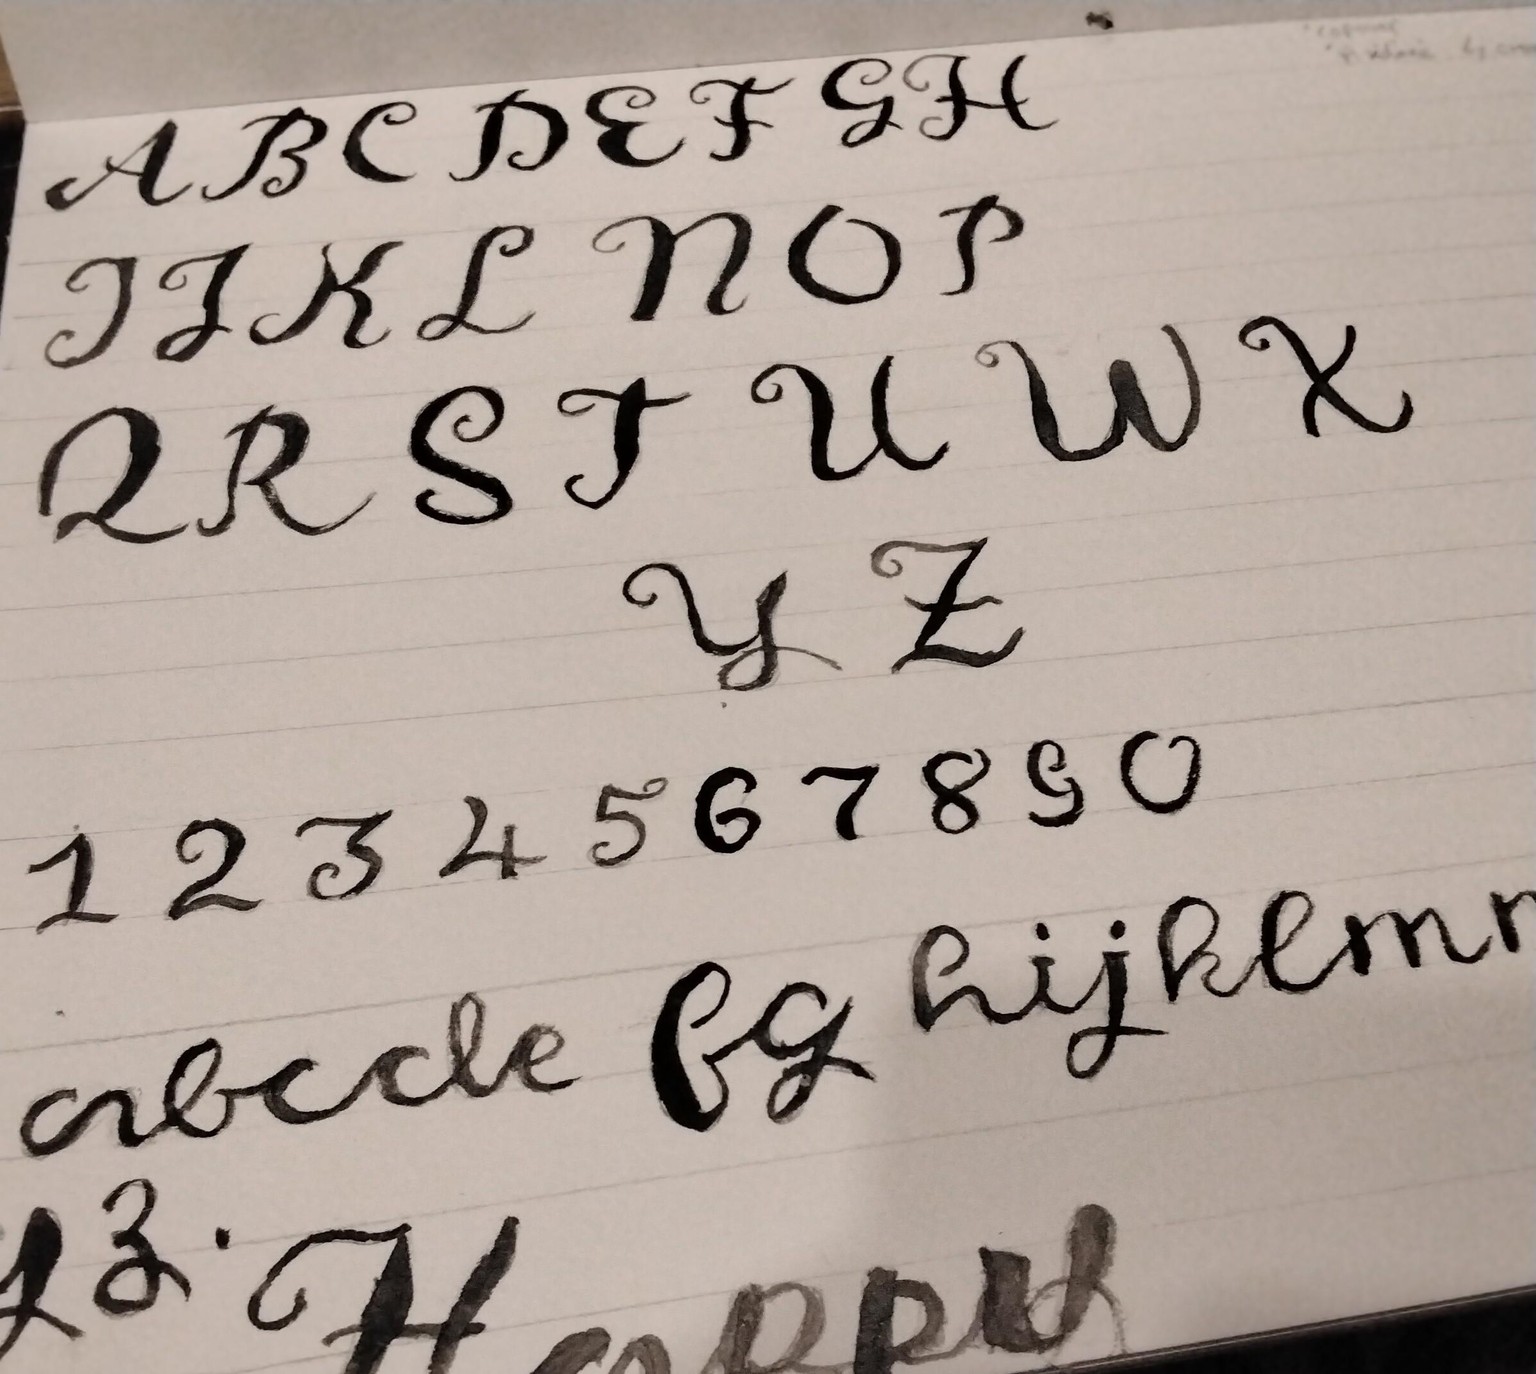 A B C D E F G H
I J K L N O P
Q R S T U W X
Y Z
1 2 3 4 5 6 7 8 9 0
abcde fg hijklmn
y z . Happy